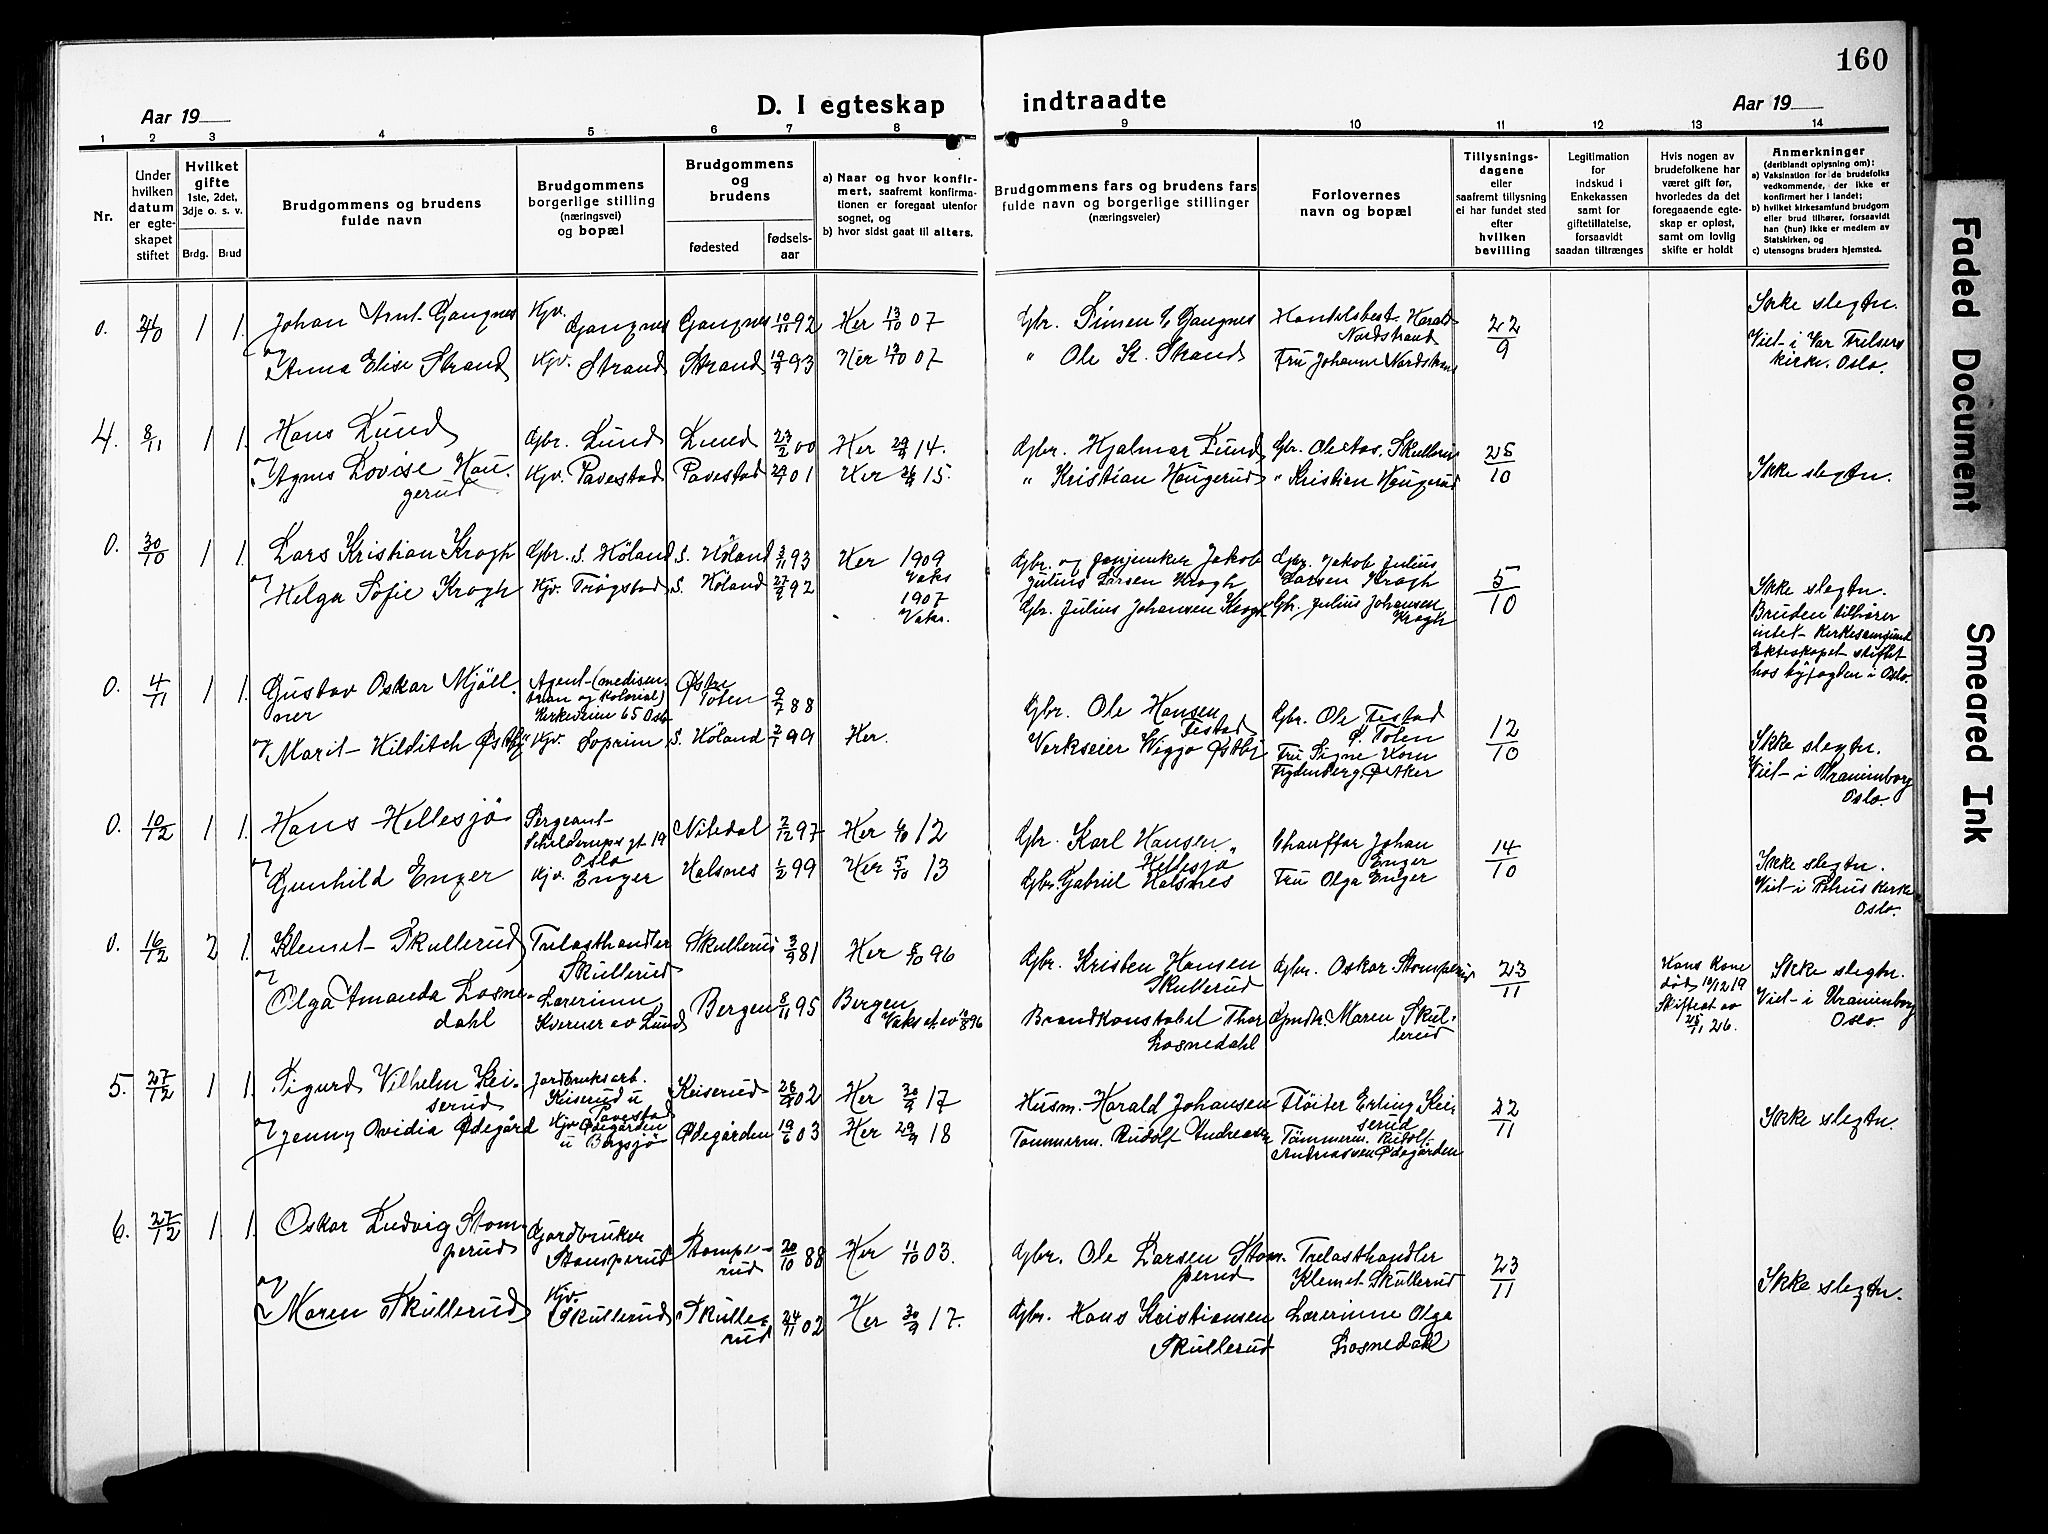 160
D. I egteskap indtraadte
Aar 19
Aar 19
1 2 3 4 5 6 7 8 9 10 11 12 13 14
Nr.
Under hvilken datum er egteskapet stiftet
Hvilket gifte 1ste, 2det, 3dje o. s. v.
Brdg. Brud
Brudgommens og brudens fulde navn
Brudgommens borgerlige stilling (næringsvei) og bopæl
Brudgommens og brudens
fødested
fødselsaar
a) Naar og hvor konfirmert, saafremt konfirmationen er foregaat utenfor sognet, og
b) hvor sidst gaat til alters.
Brudgommens fars og brudens fars fulde navn og borgerlige stillinger (næringsveier)
Forlovernes navn og bopæl
Tillysningsdagene eller saafremt tillysning ei har fundet sted efter hvilken bevilling
Legitimation for indskud i Enkekassen samt for giftetillatelse, forsaavidt saadan tiltrænges
Hvis nogen av brudefolkene har været gift før, hvorledes da det foregaaende egteskap er opløst, samt om lovlig skifte er holdt
Anmerkninger (deriblandt oplysning om):
a) Vaksination for de brudefolks vedkommende, der ikke er konfirmert her i landet;
b) hvilket kirkesamfund brudgom eller brud tilhører, forsaavidt han (hun) ikke er medlem av Statskirken, og
c) utensogns bruders hjemsted.
0. 1 1. Johan Arnt Gangnes Kjv. Gangnes Gangnes 10/11 92 Her 13/10 07 Gbr. Simen E Gangnes Handelsbest. Harald Nordstrand 22/9 Ikke slegtn.
og Anna Elise Strand Kjv. Strand Strand 19/9 93 Her 07 " Ole K. Strand Fru Johanne Nordstrand Viet i Vor Frelsers kirke. Oslo.
4. 8/11 1 1. Hans Lund Gbr. Lund Lund 23/2 00 Her 14. Gbr. Hjalmar Lund Gbr. Ole Skullerud 25/10
og Agnes Lovise Haugerud Kjv. Pavestad Pavestad 01 Her 15. " Kristian Haugerud " Kristian Haugerud Ikke slegtn.
0. 30/10 1 1. Lars Kristian Krogh Gbr. S. Høland S. Høland 3/11 93 Her 1909 Vaks Gbr. og Jakob Julius Larsen Krogh Gbr. Jakob Julius Larsen Krogh 5/10
og Helga Sofie Krogh Kjv. Trøgstad S. Høland 92 1907 Vaks. Gbr. Julius Johansen Krogh Gbr. Julius Johansen Krogh Ikke slegtn. Bruden tilhører intet kirkesamfund Ekteskapet stiftet hos byfogden i Oslo.
0. 4/11 1 1. Gustav Oskar Mjöllner Agent (medisintran og kolonial) Kirkeveien 65 Oslo Østre Toten 9/7 88 Gbr. Ole Hansen Festad Gbr. Ole Festad Ö. Toten 12/10
og Marit Hilditch Østby Kjv. Soprim S. Höland 99 Her. Verkseier Wiggo Østby Fru Signe Korn Asker Ikke slegtn. Viet i Uranienborg Oslo.
0. 10/12 1 1. Hans Hellesjö Sergeant Schilderups gt 19 Oslo Nitedal 7/12 97 Her 12 Gbr. Karl Hansen Hellesjø Chauffør Johan Enger 14/10
og Gunhild Enger Kjv. Enger Halsnes 1/2 99 Her 5/10 13 Gbr. Gabriel Halsnes Fru Olga Enger Ikke slegtn. Viet i Petrus kirke Oslo.
0. 16/12 2 1. Klemet Skullerud Trelasthandler Skullerud Skullerud 3/9 81 Her 8/10 96 Gbr. Kristen Hansen Skullerud Gbr. Oskar Stomperud 23/11 Hans Kone död 10/12 19 Skifteat av 25/11 26. Ikke slegtn.
og Olga Amanda Losnedahl Lærerinne Kverner av Lund Bergen 8/11 95 Bergen Brandkonstabel Thor Losnedahl Maren Skullerud Viet i Uranienborg Oslo.
5. 27/12 1 1. Sigurd Vilhelm Keiserud Jordbruksarb. Keiserud u Pavestad Keiserud 02 Her 30/9 17 Husm. Harald Johansen Fløiter Erling Keiserud 22/11
og Jenny Ovidia Ødegård Kjv. Ødegården u Bergsjö Ødegården 19/6 03 Her 29/9 18 Tømmerm. Rudolf Andreassen Tömmerm. Rudolf Andreassen Ödegården Ikke slegtn.
6. 27/12 1 1. Oskar Ludvig Stomperud Gardbruker Stomperud Stomperud 20/10 88 Her 11/10 03. Gbr. Ole Larsen Stomperud Trelasthandler Klemet Skullerud 23/11
og Maren Skullerud Kjv. Skullerud Skullerud 24/11 02 Her 30/9 17. Gbr. Hans Kristiansen Skullerud Lærerinne Olga Losnedahl Ikke slegtn.
Faded Document
Smeared Ink